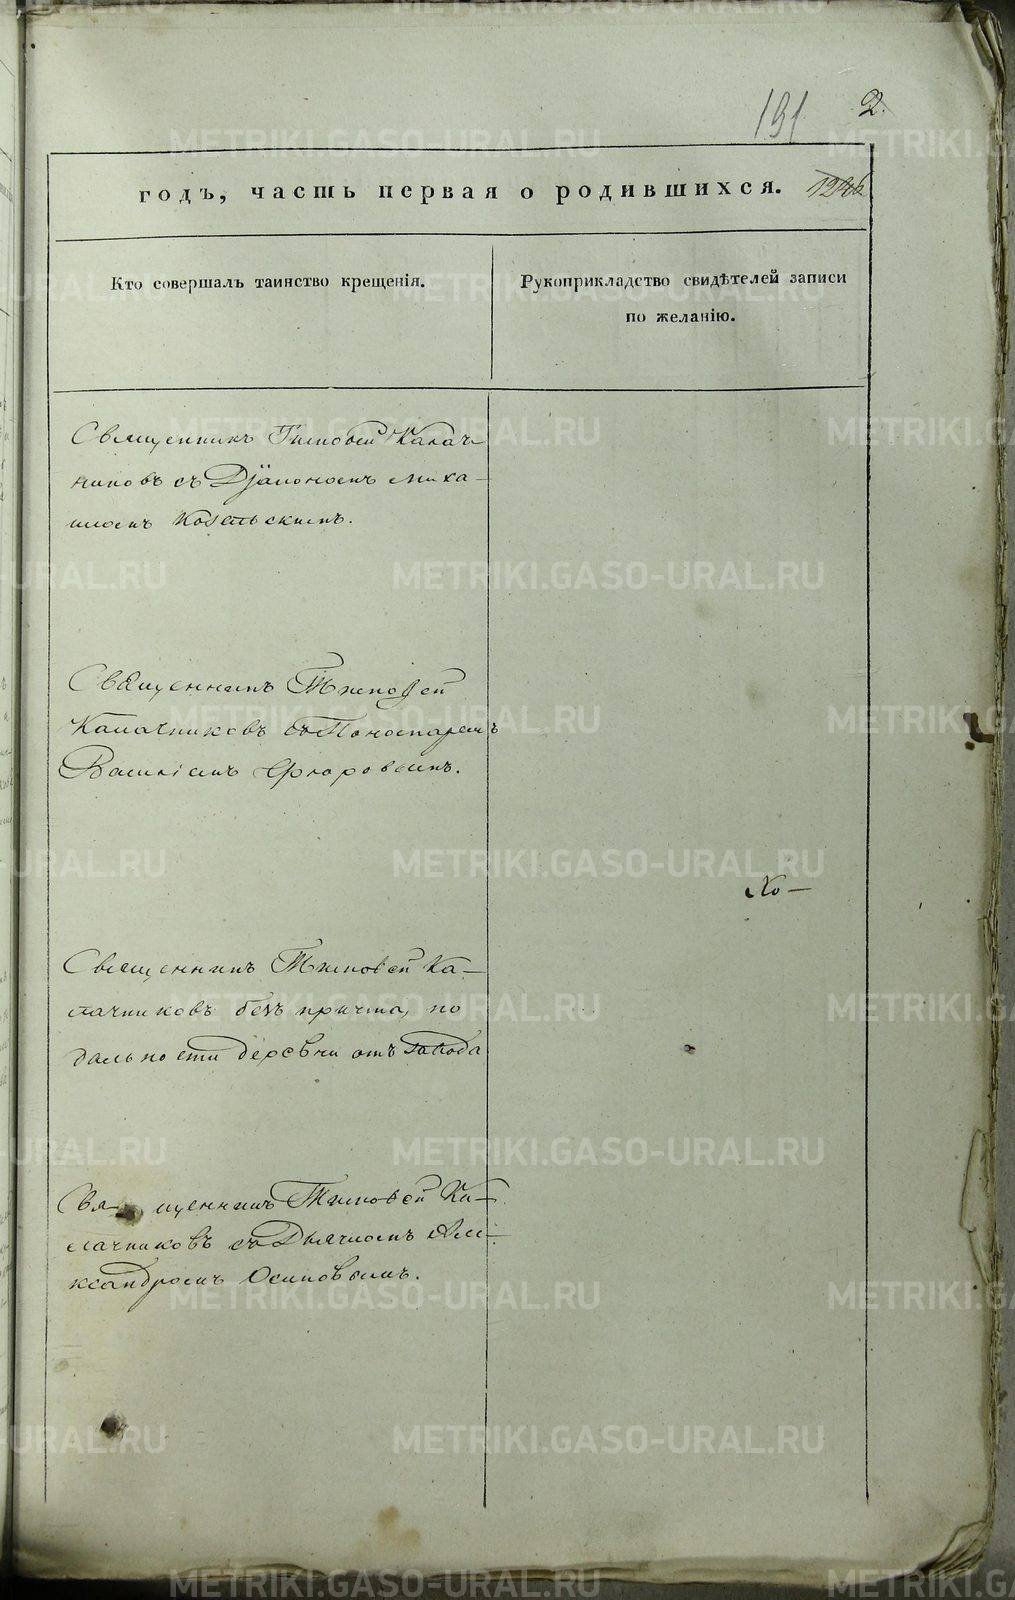 191 2.
годъ, часть первая о родившихся. 1246
Кто совершалъ таинство крещенія.
Рукоприкладство свидѣтелей записи
по желанію.
Священникъ Тимофей Калач-
никовъ съ Діакономъ Миха-
иломъ Козельскимъ.
Священникъ Тимофей
Калачниковъ съ Пономаремъ
Василіемъ Флоровымъ.
Священникъ Тимофей Ка-
лачниковъ безъ причта, по
дальности деревни отъ завода
Свя- щенникъ Тимофей Ка-
лачниковъ съ Дьячкомъ Але-
ксандромъ Осиповымъ.
METRIKI.GASO-URAL.RU